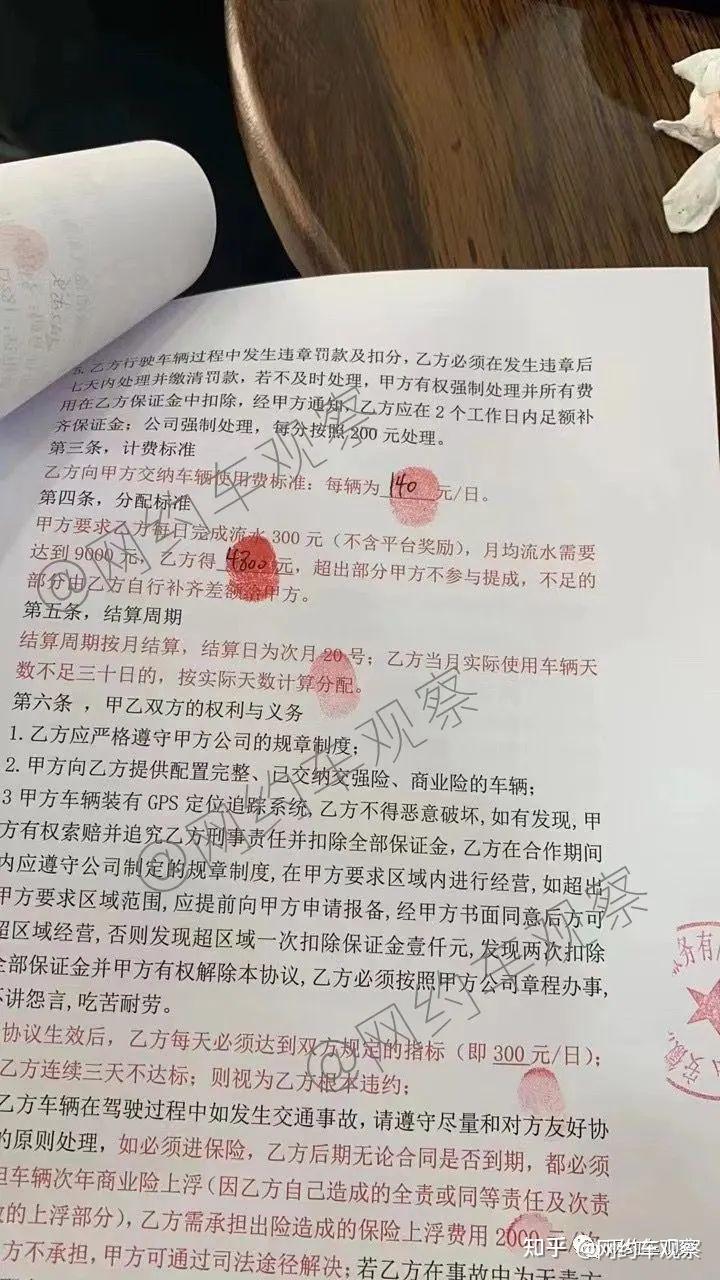 5. 乙方行驶车辆过程中发生违章罚款及扣分，乙方必须在发生违章后
七天内处理并缴清罚款，若不及时处理，甲方有权强制处理并所有费
用在乙方保证金中扣除，经甲方通知，乙方应在2个工作日内足额补
齐保证金；公司强制处理，每分按照200元处理。
第三条，计费标准
乙方向甲方交纳车辆使用费标准：每辆为 140 元/日。
第四条，分配标准
甲方要求乙方每日完成流水300元（不含平台奖励），月均流水需要
达到9000元，乙方得 4800 元，超出部分甲方不参与提成，不足的
部分由乙方自行补齐差额给甲方。
第五条，结算周期
结算周期按月结算，结算日为次月20号；乙方当月实际使用车辆天
数不足三十日的，按实际天数计算分配。
第六条 ，甲乙双方的权利与义务
1.乙方应严格遵守甲方公司的规章制度；
2.甲方向乙方提供配置完整、已交纳交强险、商业险的车辆；
3 甲方车辆装有GPS定位追踪系统,乙方不得恶意破坏,如有发现,甲
方有权索赔并追究乙方刑事责任并扣除全部保证金,乙方在合作期间
内应遵守公司制定的规章制度,在甲方要求区域内进行经营,如超出
甲方要求区域范围,应提前向甲方申请报备,经甲方书面同意后方可
超区域经营,否则发现超区域一次扣除保证金壹仟元,发现两次扣除
全部保证金并甲方有权解除本协议,乙方必须按照甲方公司章程办事,
不讲怨言,吃苦耐劳。
协议生效后，乙方每天必须达到双方规定的指标（即300元/日）；
乙方连续三天不达标；则视为乙方根本违约；
乙方车辆在驾驶过程中如发生交通事故，请遵守尽量和对方友好协
的原则处理，如必须进保险，乙方后期无论合同是否到期，都必须
担车辆次年商业险上浮（因乙方自己造成的全责或同等责任及次责
的上浮部分），乙方需承担出险造成的保险上浮费用2000元/
方不承担，甲方可通过司法途径解决；若乙方在事故中为无责方
务有
安徽
@网约车观察
@网约车观察
@网约车观察
知乎 @网约车观察